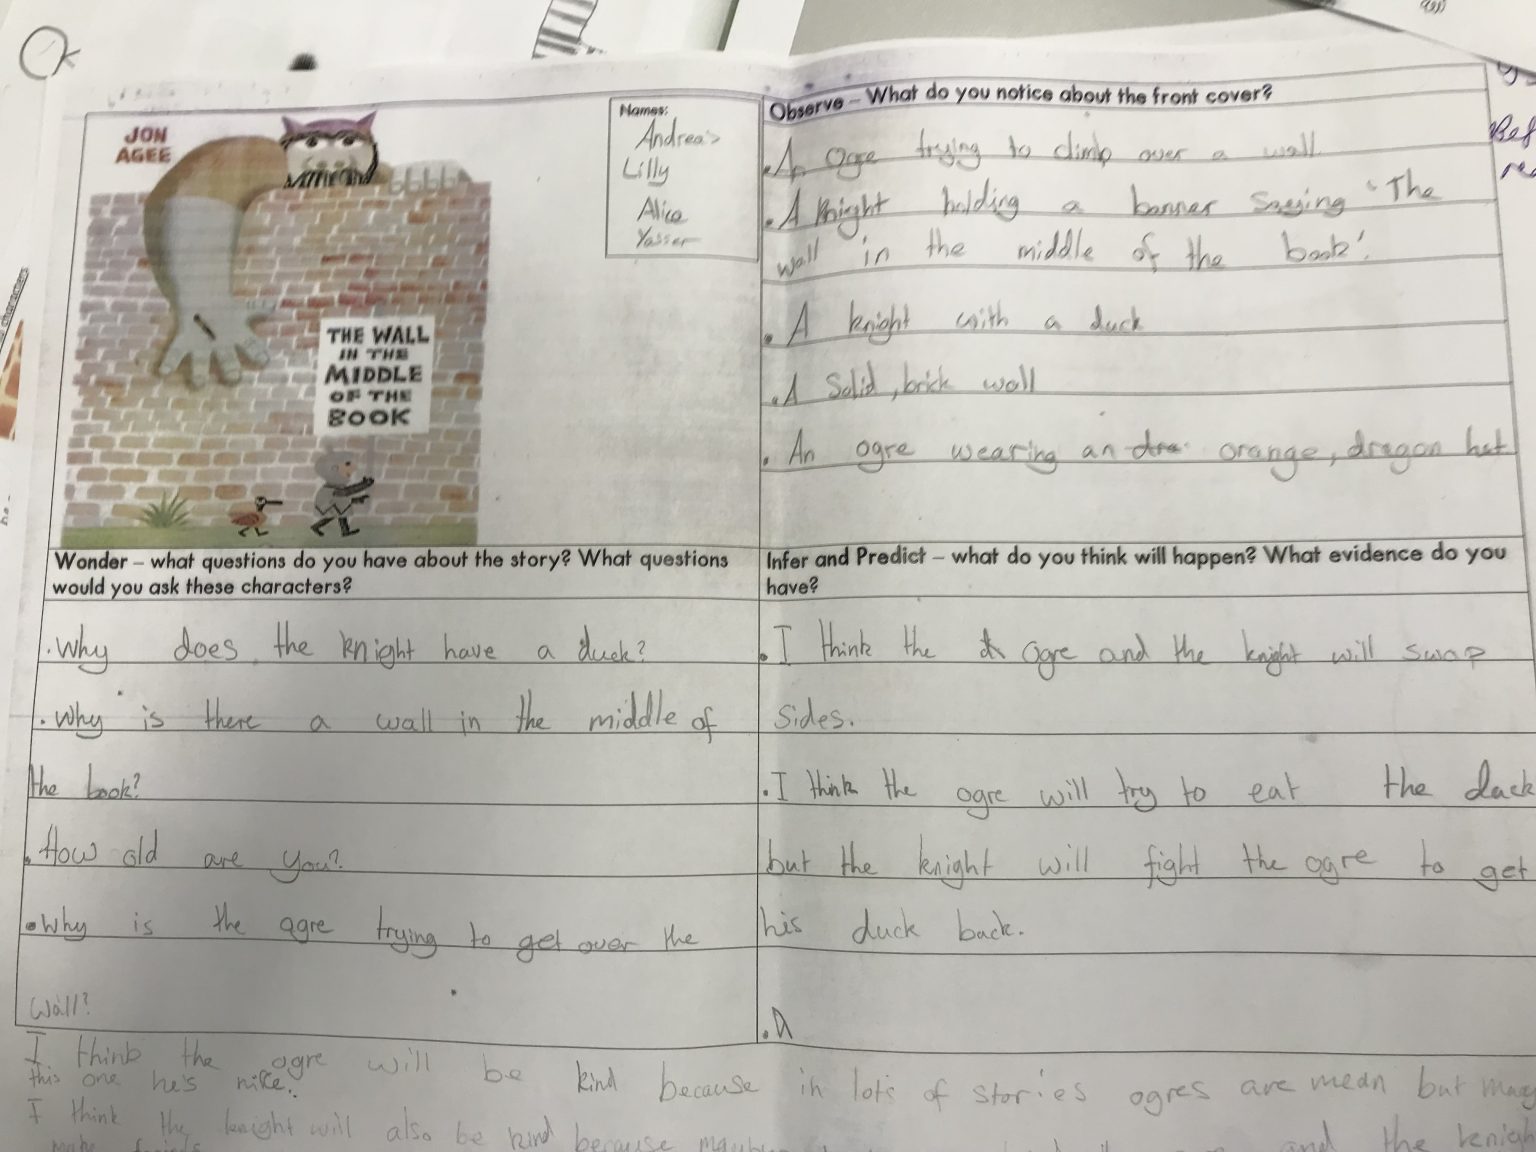 Ok
JON
AGEE
THE WALL
IN THE
MIDDLE
OF THE
BOOK
Names:
Andreas
Lilly
Alice
Yasser
Observe – What do you notice about the front cover?
. An Ogre trying to climb over a wall
. A knight holding a banner saying 'The
wall in the middle of the book'.
. A knight with a duck
. A Solid, brick wall
. An ogre wearing an orange, dragon hat
Wonder – what questions do you have about the story? What questions
would you ask these characters?
. Why does the knight have a duck?
. Why is there a wall in the middle of
the book?
. How old are you?
. Why is the ogre trying to get over the
wall?
Infer and Predict – what do you think will happen? What evidence do you
have?
. I think the Ogre and the knight will swap
sides.
. I think the ogre will try to eat the duck
but the knight will fight the ogre to get
his duck back.
. A
I think the ogre will be kind because in lots of stories ogres are mean but
this one he's nike.
I think the knight will also be kind because and the